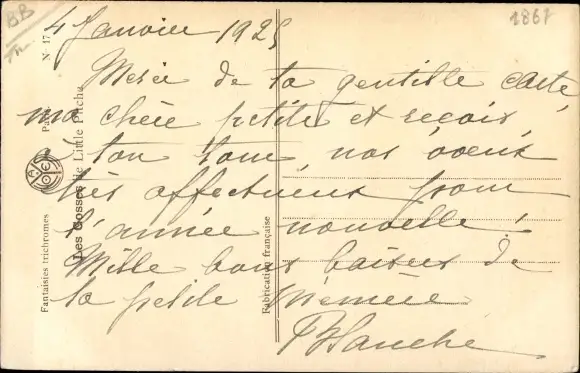 BB
1867
4 Janvier 1925
Merci de ta gentille carte,
ma chère petite et reçois,
à ton tour, nos voeux
très affectueux pour
l'année nouvelle !
Mille bons baisers de
ta petite Mémère
Blanche
Fantaisies trichromes
Les Gosses de Little Pitche
Fabrication française